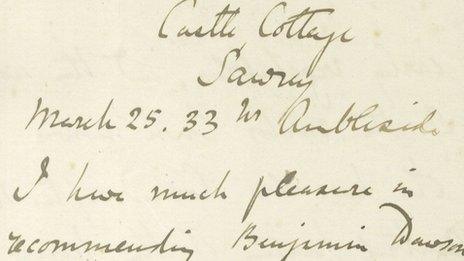 Castle Cottage
Sawrey
March 25. 33 nr Ambleside
I have much pleasure in
recommending Benjamin Dawson